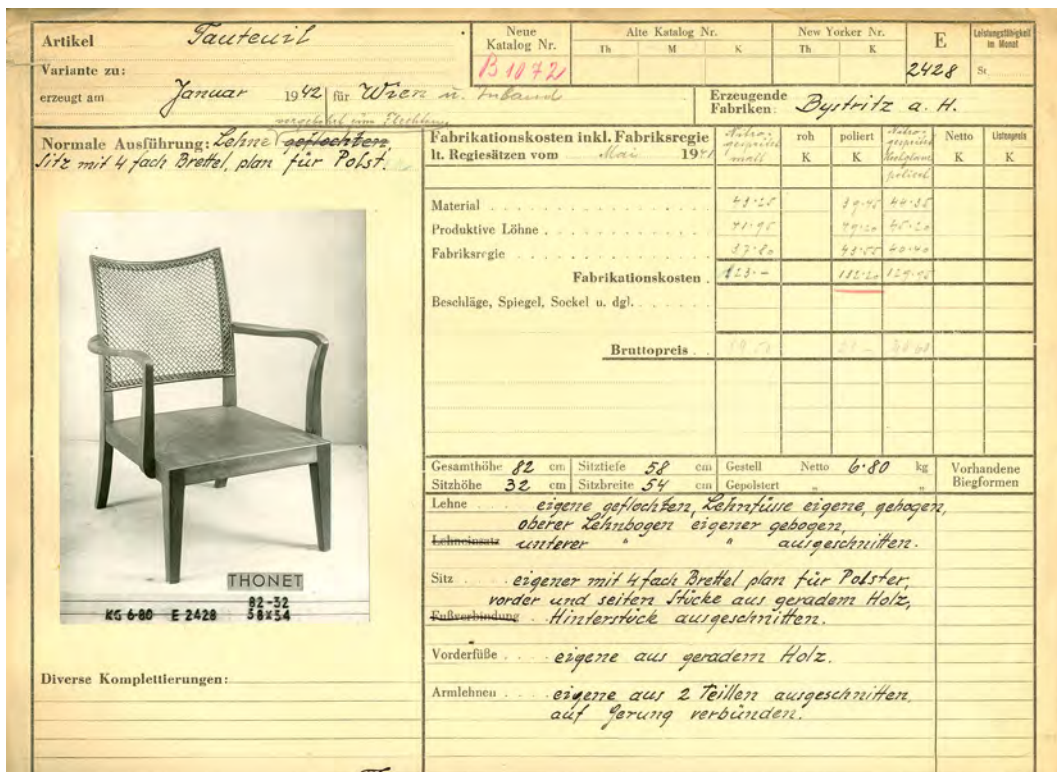 Artikel Fauteuil
Neue Katalog Nr. B 1072
Alte Katalog Nr. Th M K
New Yorker Nr. Th K
E 2428
Leistungsfähigkeit im Monat St.
Variante zu:
erzeugt am Januar 1942 für Wien u. Inland
Erzeugende Fabriken: Bystritz a. H.
vorgebohrt zum Flechten
Normale Ausführung: Lehne geflochten,
Sitz mit 4 fach Brettel, plan für Polst.
Fabrikationskosten inkl. Fabriksregie
lt. Regiesätzen vom Mai 1941
roh K poliert K Netto K Listenpreis K
Material 43·25 39·45 44·35
Produktive Löhne 41·95 49·20 45·20
Fabriksregie 37·80 43·55 40·40
Fabrikationskosten 123·– 132·20 129·95
Beschläge, Spiegel, Sockel u. dgl.
Bruttopreis
Gesamthöhe 82 cm Sitztiefe 58 cm Gestell Netto 6·80 kg Vorhandene Biegformen
Sitzhöhe 32 cm Sitzbreite 54 cm Gepolstert " "
Lehne eigene geflochten, Lehnfüsse eigene, gebogen,
oberer Lehnbogen eigener gebogen,
Lehneinsatz unterer " " ausgeschnitten.
Sitz eigener mit 4 fach Brettel plan für Polster,
vorder und seiten Stücke aus geradem Holz,
Fußverbindung Hinterstück ausgeschnitten.
Vorderfüße eigene aus geradem Holz.
Armlehnen eigene aus 2 Teillen ausgeschnitten,
auf Gerung verbünden.
THONET
82-32
KG 6-80 E 2428 58x54
Diverse Komplettierungen: